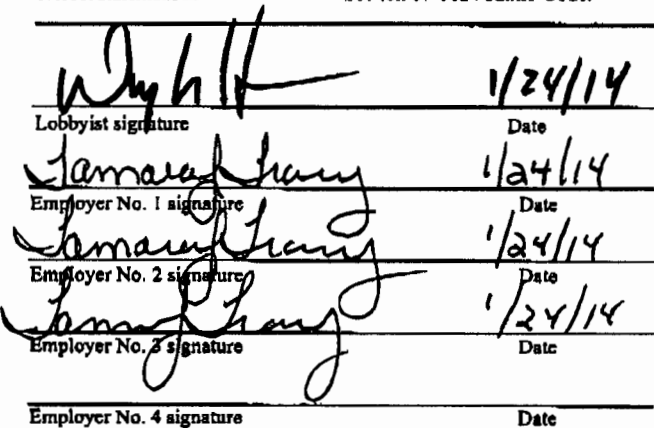 1/24/14
Lobbyist signature Date
Tamara J Tracy 1/24/14
Employer No. 1 signature Date
Tamara J Tracy 1/24/14
Employer No. 2 signature Date
1/24/14
Employer No. 3 signature Date
Employer No. 4 signature Date